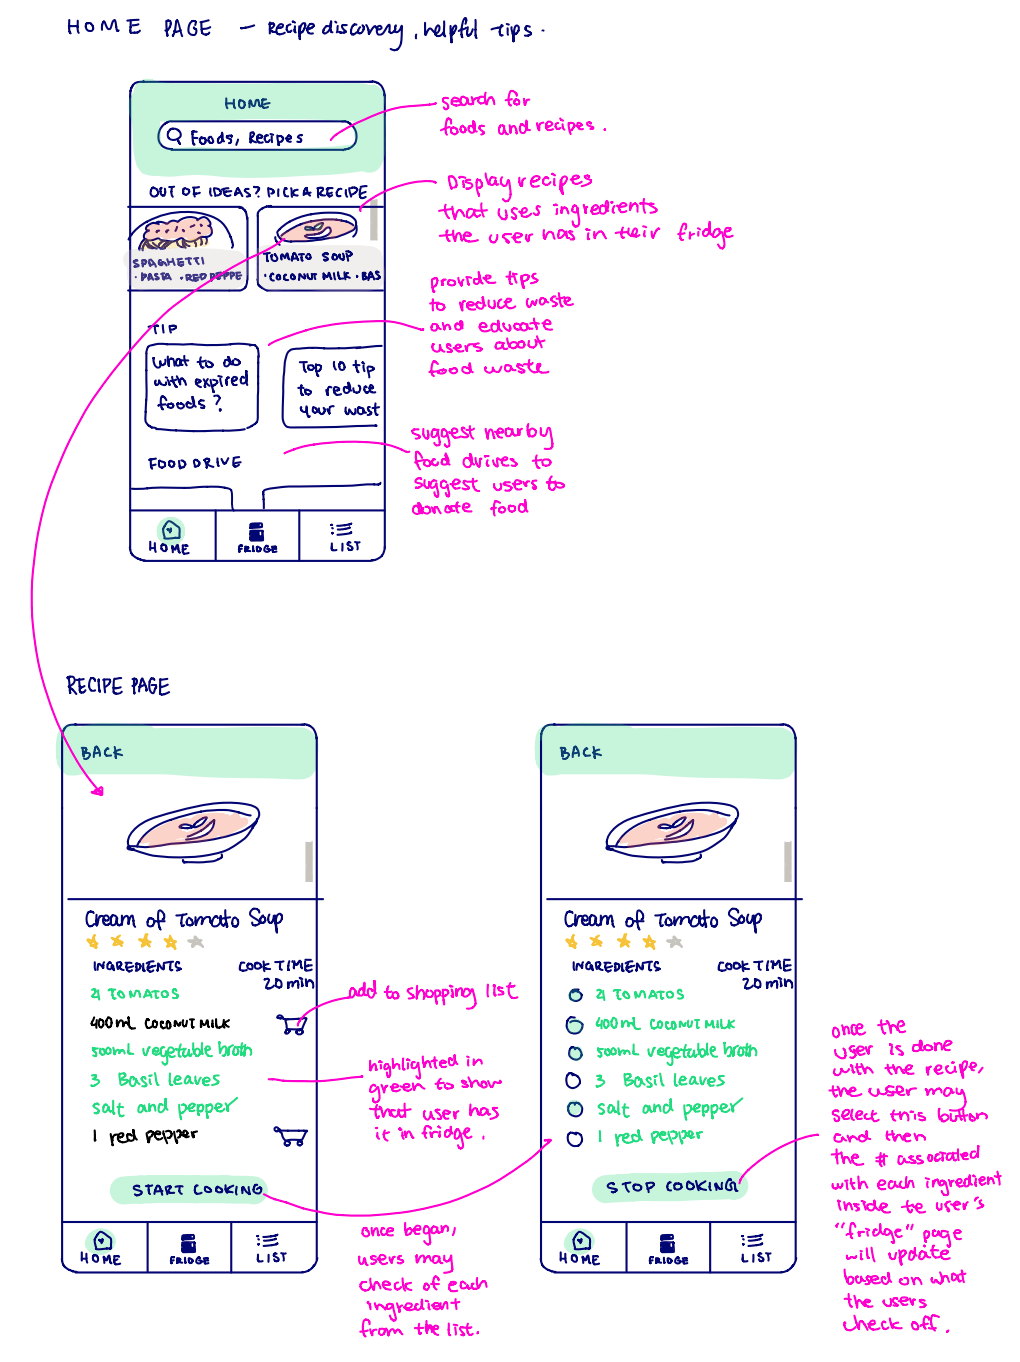 HOME PAGE – Recipe discovery, helpful tips.
HOME
Foods, Recipes
search for
foods and recipes.
OUT OF IDEAS? PICK A RECIPE
SPAGHETTI
· PASTA · RED PEPPE
TOMATO SOUP
· COCONUT MILK · BAS
Display recipes
that uses ingredients
the user has in their fridge
TIP
What to do
with expired
foods?
Top 10 tip
to reduce
your wast
provide tips
to reduce waste
and educate
users about
food waste
FOOD DRIVE
suggest nearby
food drives to
suggest users to
donate food
HOME
FRIDGE
LIST
RECIPE PAGE
BACK
Cream of Tomato Soup
INGREDIENTS
COOK TIME
20 min
4 TOMATOS
400mL COCONUT MILK
500mL vegetable broth
3 Basil leaves
salt and pepper
1 red pepper
START COOKING
HOME
FRIDGE
LIST
add to shopping list
highlighted in
green to show
that user has
it in fridge.
once began,
users may
check of each
ingredient
from the list.
BACK
Cream of Tomato Soup
INGREDIENTS
COOK TIME
20 min
4 TOMATOS
400mL COCONUT MILK
500mL vegetable broth
3 Basil leaves
salt and pepper
1 red pepper
STOP COOKING
HOME
FRIDGE
LIST
once the
user is done
with the recipe,
the user may
select this button
and then
the # associated
with each ingredient
inside te user's
"fridge" page
will update
based on what
the users
check off.